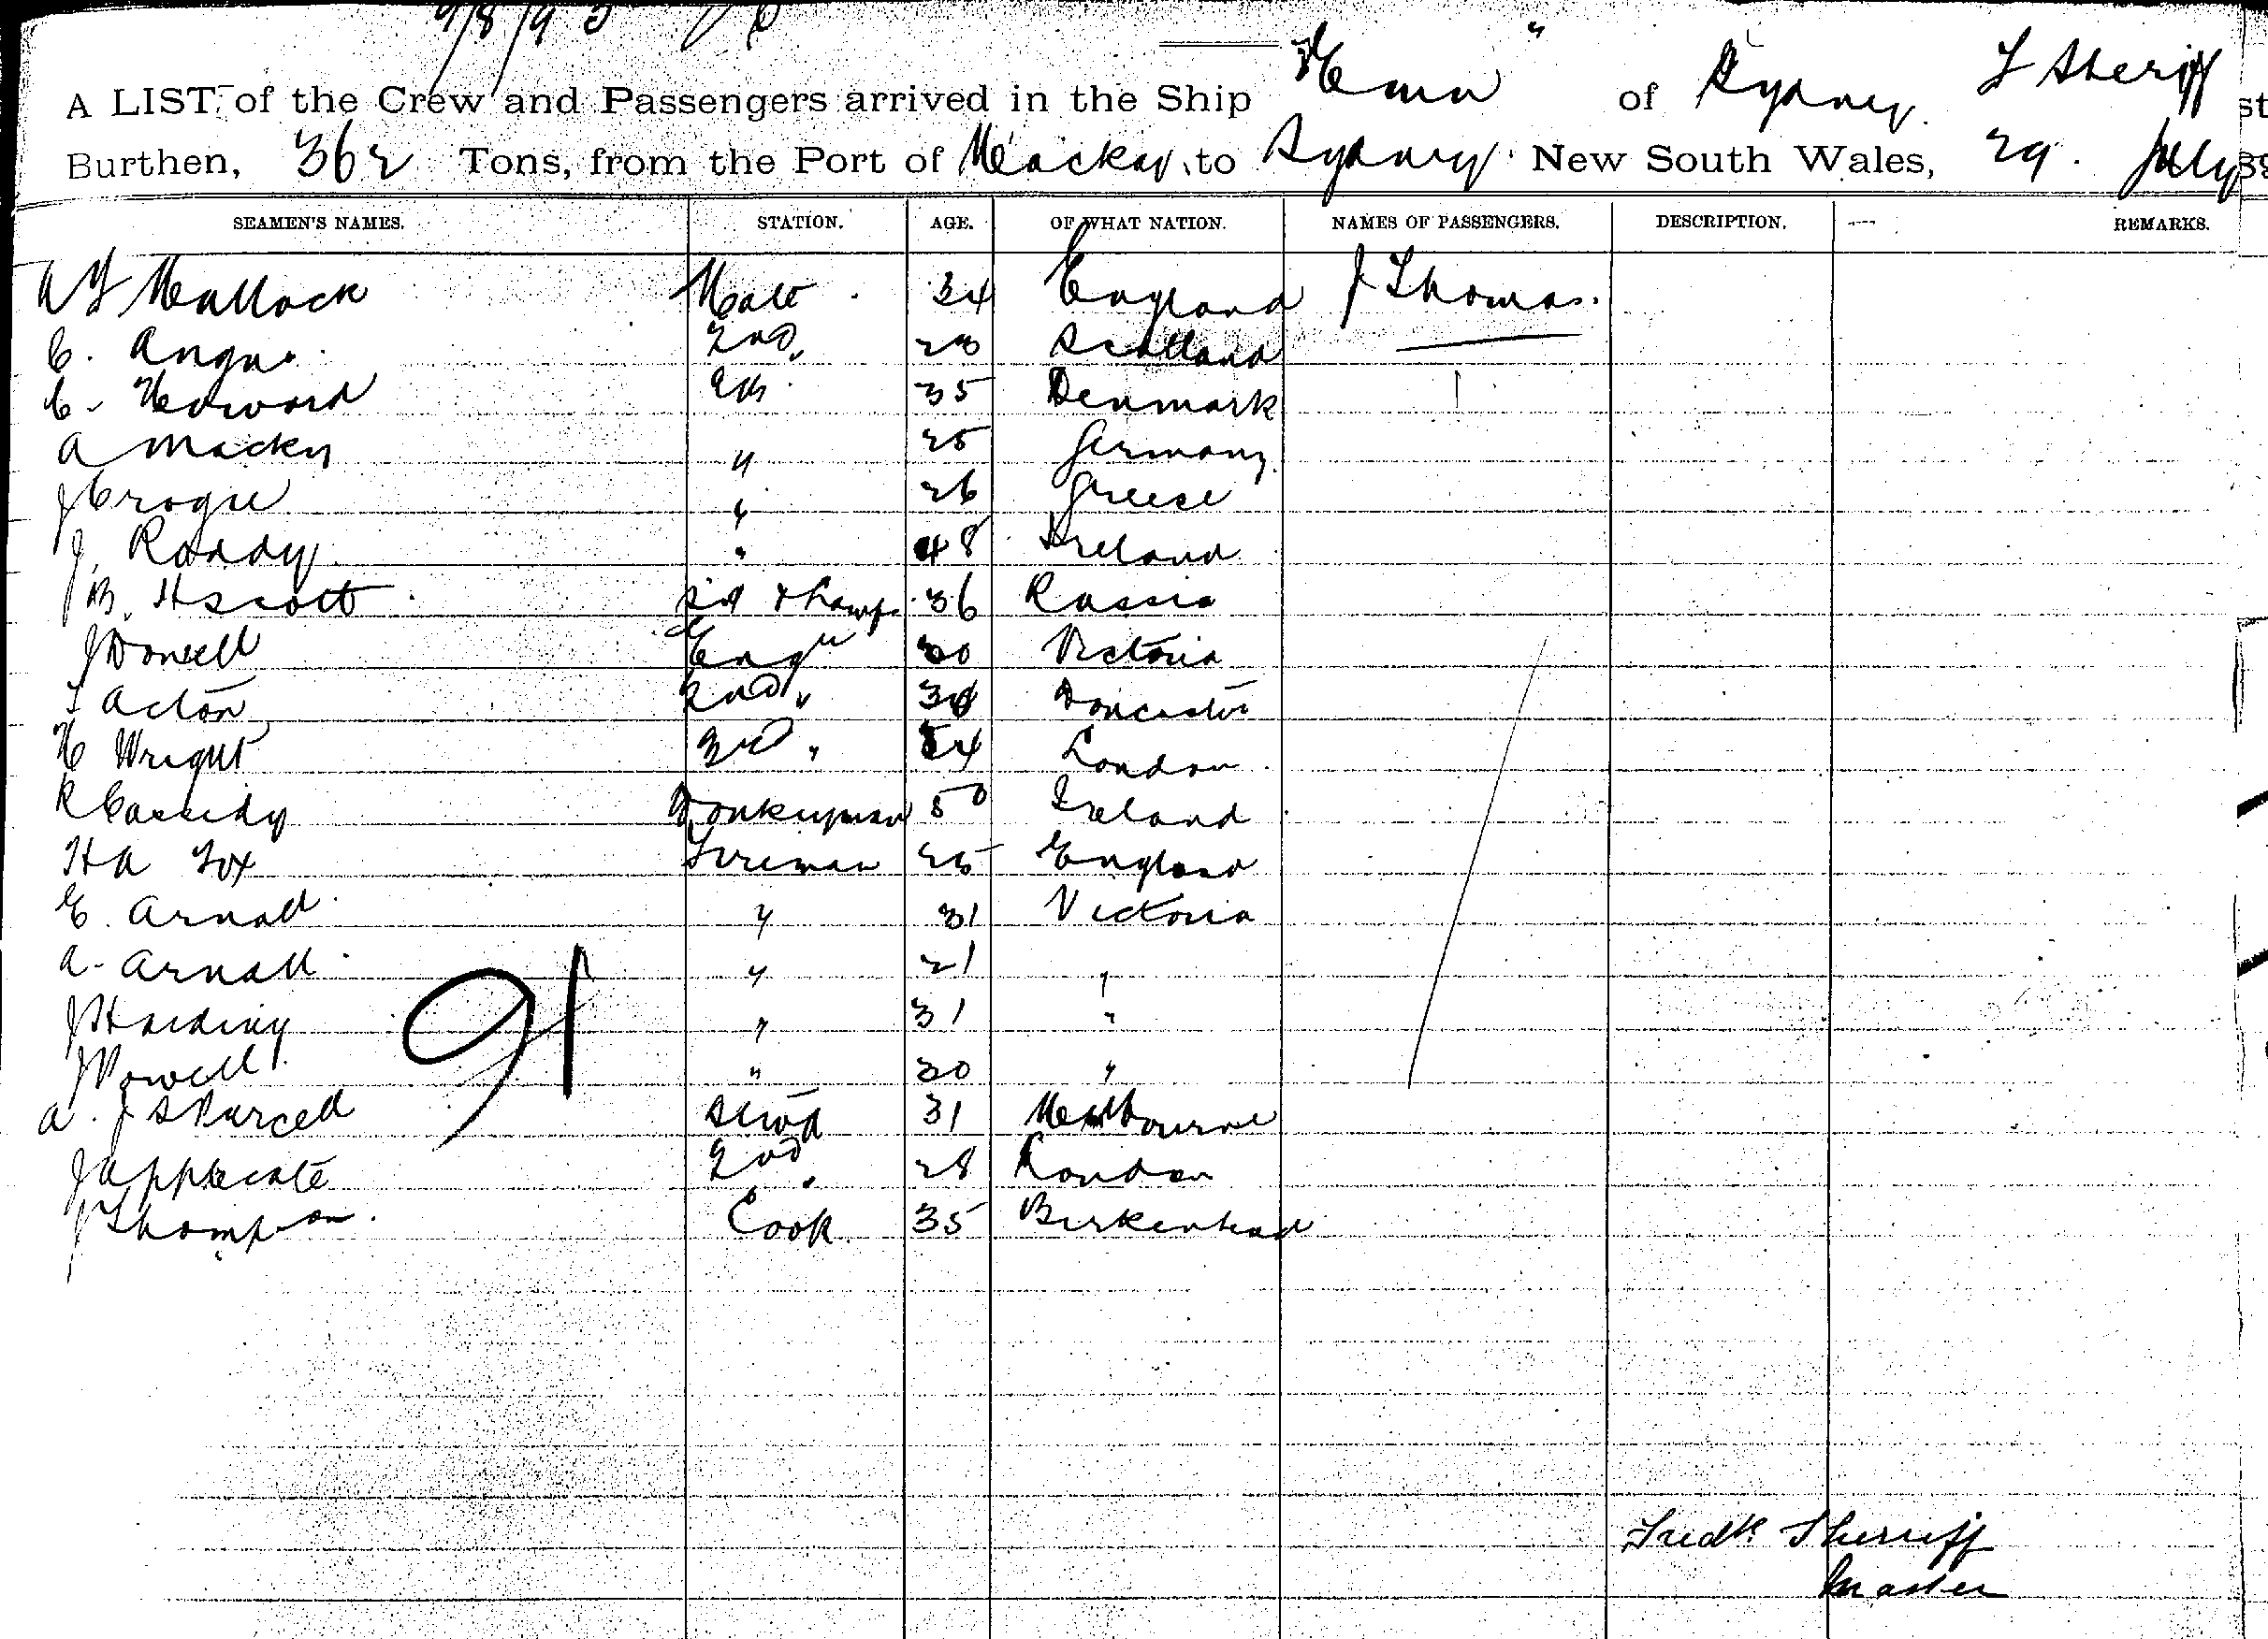 9/8/95
A LIST of the Crew and Passengers arrived in the Ship " " of Sydney F Sheriff
Burthen, 362 Tons, from the Port of Mackay to Sydney New South Wales, 29. July
SEAMEN'S NAMES. STATION. AGE. OF WHAT NATION. NAMES OF PASSENGERS. DESCRIPTION. REMARKS.
A F Mullock Mate 34 England J Thomas.
C. Angus 2nd Scotland
C. AB 35 Denmark
A Macky " 25 Germany
J " 26 Greese
J. Roddy " 48 Ireland
B. H Scott & Lamps 36 Russia
J Dowsell Engr 30 Victoria
F Acton 2nd " Doncaster
H Wright 3rd " London
R Cassidy Donkeyman 50 Ireland
H A Fox Fireman 25 England
E. Arnall " 31 Victoria
A. Arnall " 21 "
J Harding " 31 "
J Powell " 30 "
A. J S Purcell Stwd 31 Melbourne
J Applecate 2nd " 28 London
J Thompson Cook 35 Birkenhead
91
Fredk Sherriff
Master